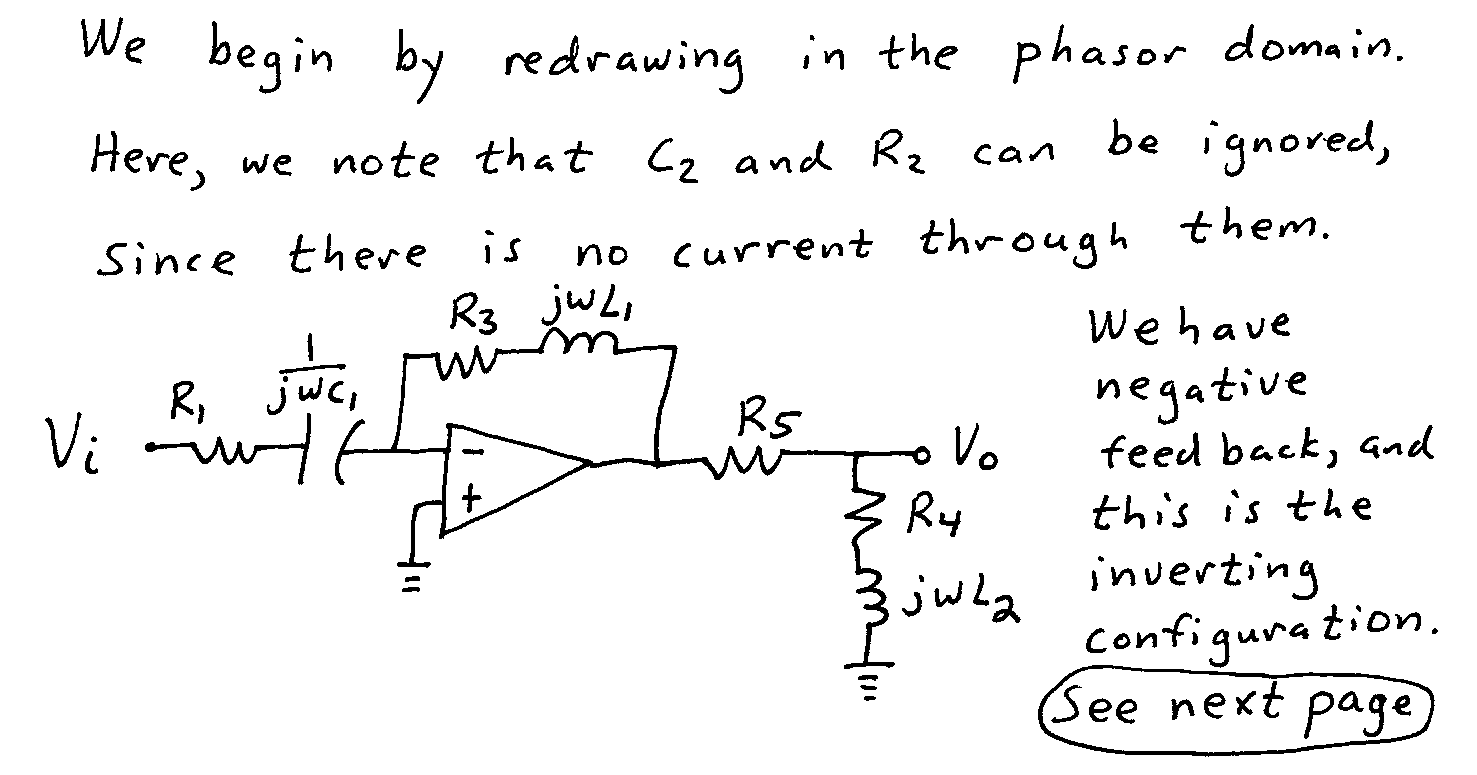 We begin by redrawing in the phasor domain.
Here, we note that C₂ and R₂ can be ignored,
Since there is no current through them.
R₃ jωL₁
1/jωC₁
R₁
Vi
-
+
R₅
Vo
R₄
jωL₂
We have
negative
feedback, and
this is the
inverting
configuration.
See next page